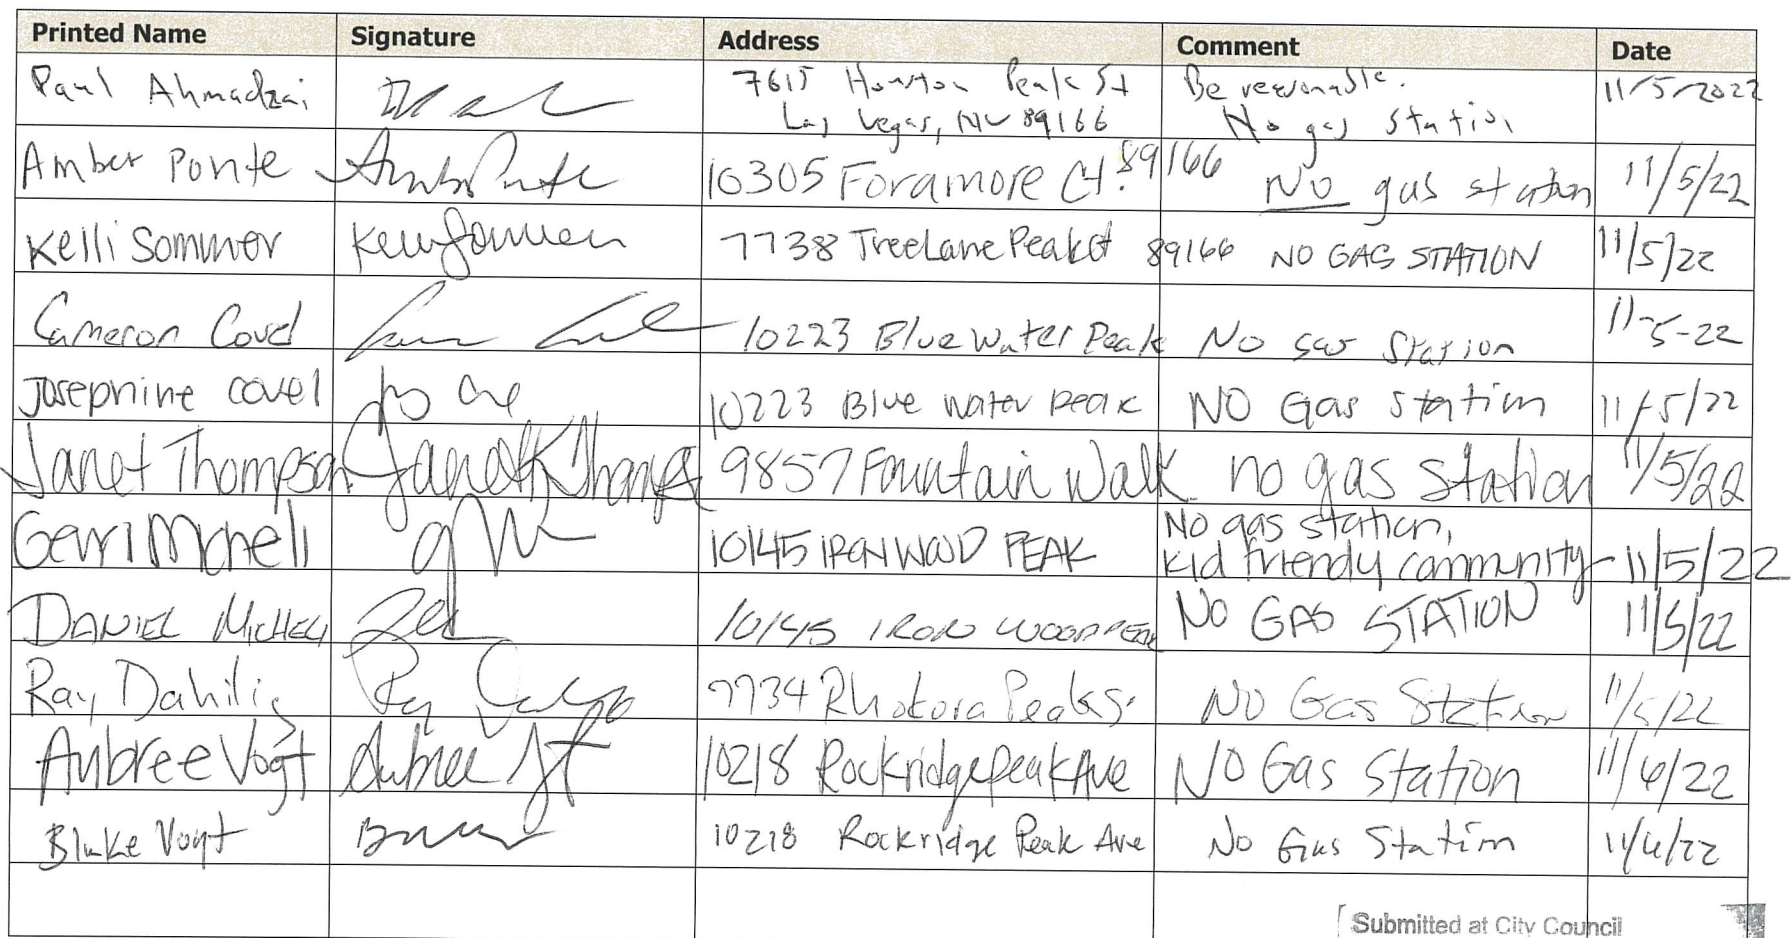 Printed Name Signature Address Comment Date
Paul Ahmadzai 7615 Houston Peak St Be reasonable. 11/5/2022
Las Vegas, NV 89166 No gas station
Amber Ponte Amber Ponte 10305 Foramore Ct. 89166 No gas station 11/5/22
Kelli Sommer Kelli Sommer 7738 TreeLane Peak St 89166 NO GAS STATION 11/5/22
Cameron Covel 10223 Blue Water Peak No gas station 11-5-22
Josephine Covel 10223 Blue Water Peak NO Gas station 11/5/22
Janet Thompson Janet K Thompson 9857 Fountain Walk no gas station 11/5/22
Gerri Micheli 10145 IRONWOOD PEAK No gas station,
kid friendy community 11/5/22
DANIEL MICHELI 10145 IRON WOOD PEAK NO GAS STATION 11/5/22
Ray Dahilig 7734 Rhokora Peak S. NO Gas Station 11/5/22
Aubree Vogt Aubree Vogt 10218 Rockridge Peak Ave NO Gas Station 11/6/22
Blake Vogt 10218 Rockridge Peak Ave No Gas Station 11/6/22
Submitted at City Council